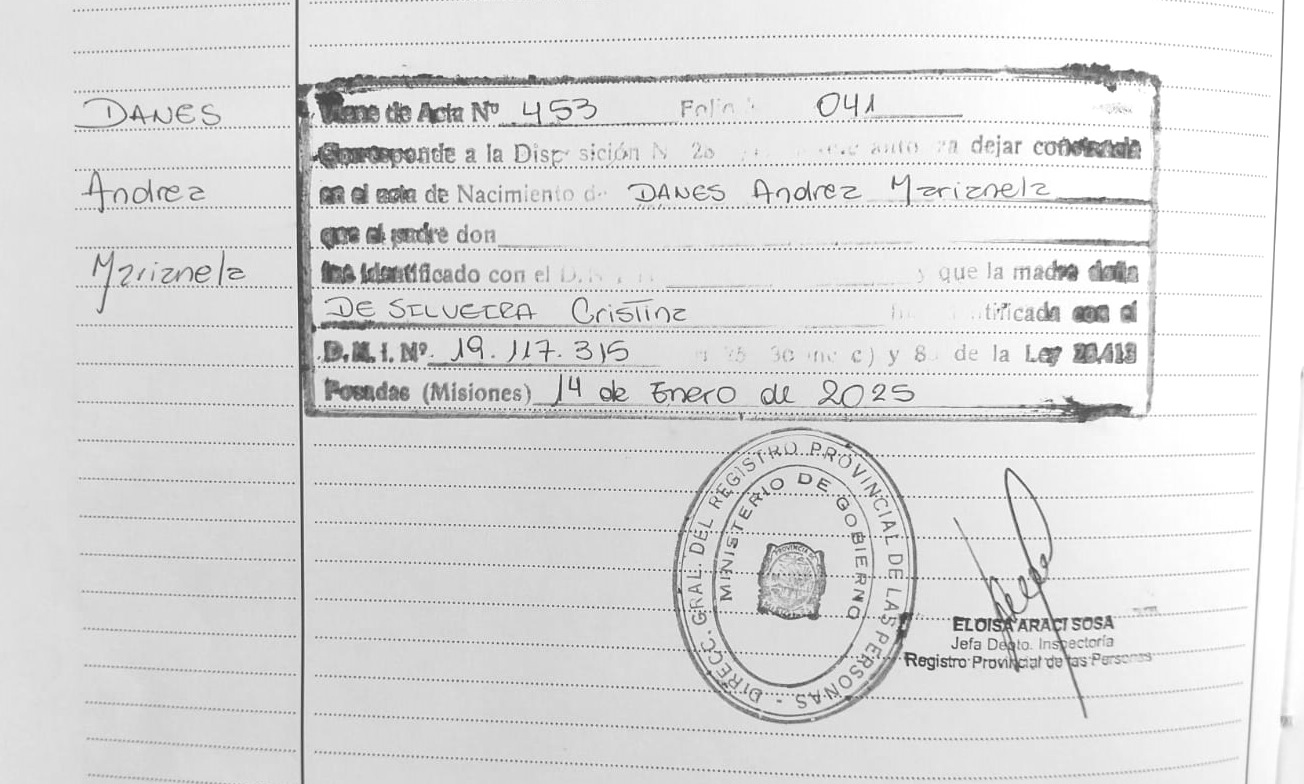 DANES
Andrea
Marianela
Viene de Acta Nº 453 Folio 041
Corresponde a la Disposición N 20 dejar constancia
en el acta de Nacimiento de DANES Andrea Marianela
que el padre don
fue identificado con el D.N.I. N y que la madre doña
DE SILVEIRA Cristina identificada con el
D.N.I. Nº. 19.117.315 inc c) y 8 de la Ley 26.413
Posadas (Misiones) 14 de Enero de 2025
DIRECC. GRAL. DEL REGISTRO PROVINCIAL DE LAS PERSONAS -
MINISTERIO DE GOBIERNO
PROVINCIA DE
ELOISA ARACI SOSA
Jefa Depto. Inspectoría
Registro Provincial de las Personas